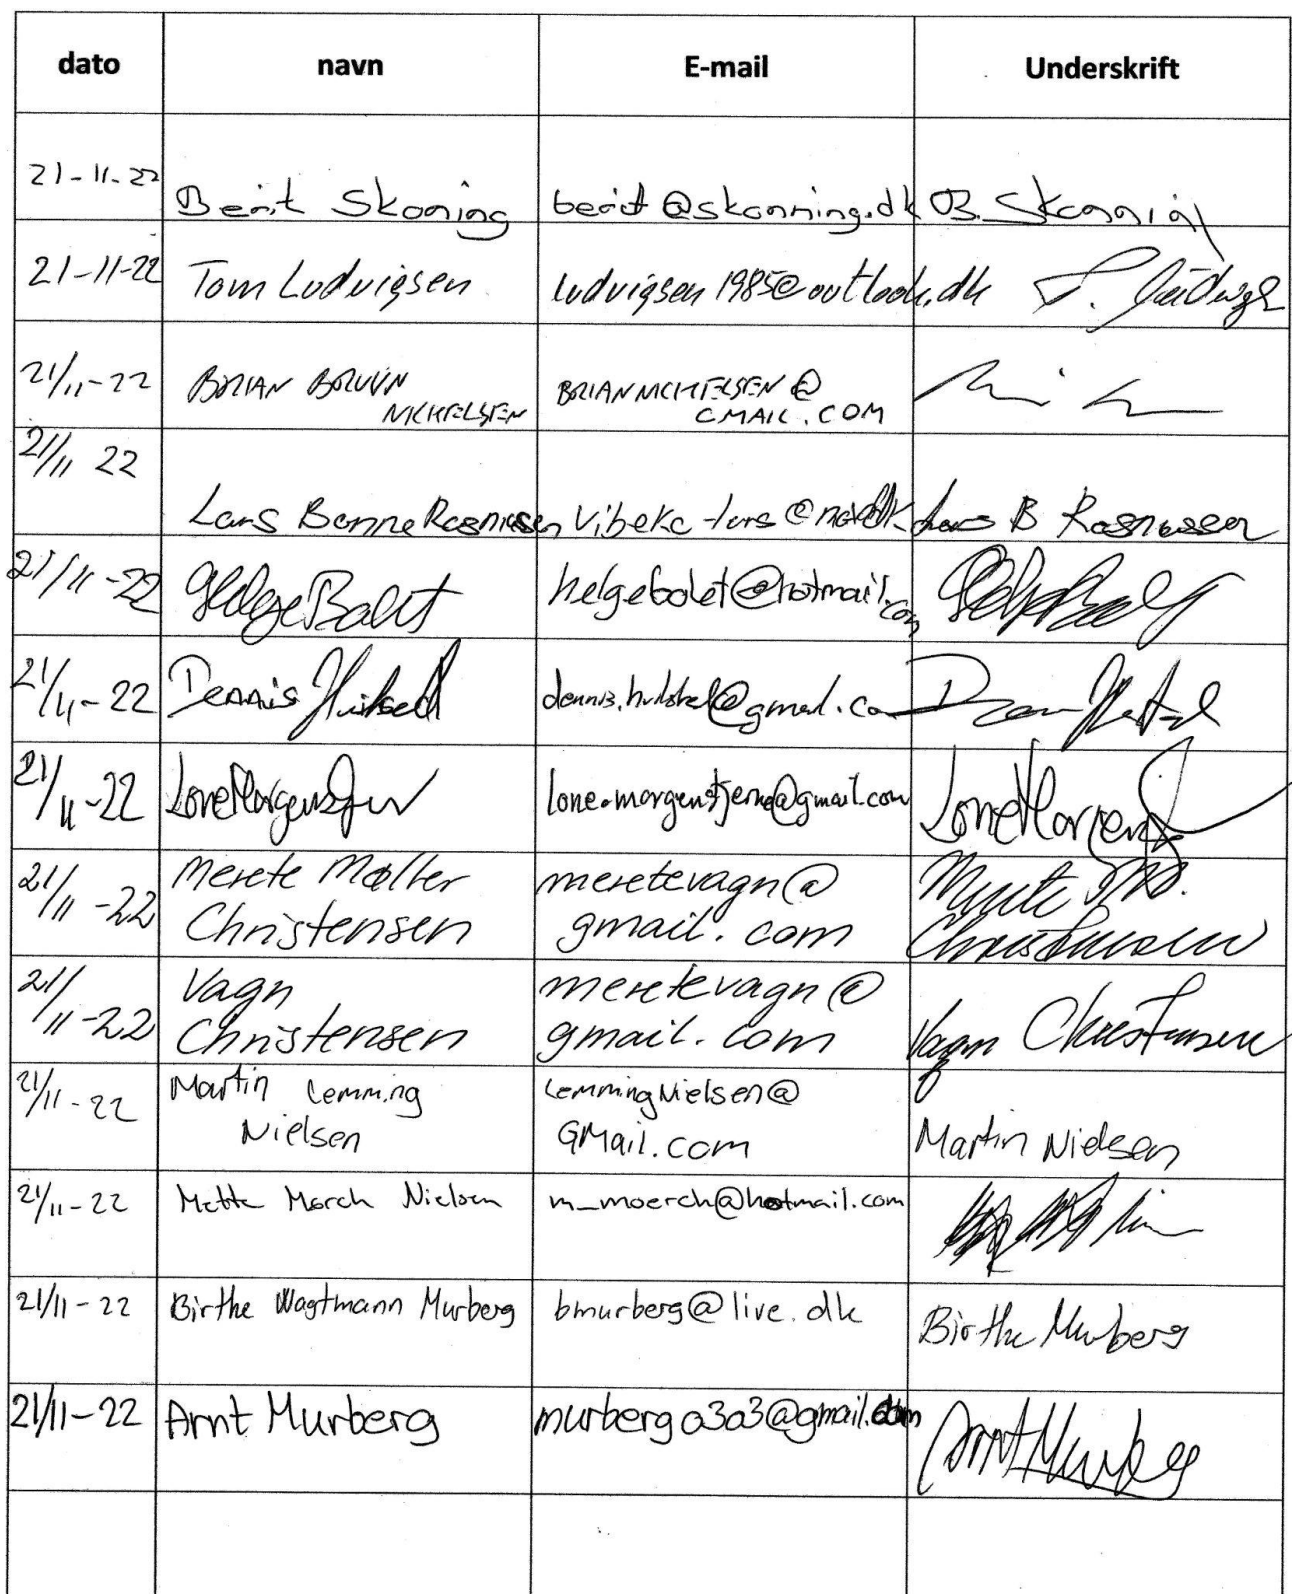 dato navn E-mail Underskrift
21-11-22 Berit Skonning berit@skonning.dk B. Skonning
21-11-22 Tom Ludvigsen ludvigsen1985@outlook.dk T.
21/11-22 BRIAN BRUUN BRIANMICHELSEN@
MICHELSEN GMAIL.COM
21/11 22
Lars Bonne Rasmussen Vibeke-lars@ Lars B Rasmussen
21/11-22 Helge Bolet helgebolet@hotmail.com
21/11-22 Dennis
21/11-22 Lone Morgenstjerne lone.morgenstjerne@gmail.com Lone Morgenst
21/11-22 Merete Møller meretevagn@ Merete M.
Christensen gmail.com Christensen
21/11-22 Vagn meretevagn@
Christensen gmail.com Vagn Christensen
21/11-22 Martin Lemming LemmingNielsen@
Nielsen GMail.com Martin Nielsen
21/11-22 Mette Mørch Nielsen m_moerch@hotmail.com
21/11-22 Birthe Wagtmann Murberg bmurberg@live.dk Birthe Murberg
21/11-22 Arnt Murberg murberg0303@gmail.com Arnt Murberg